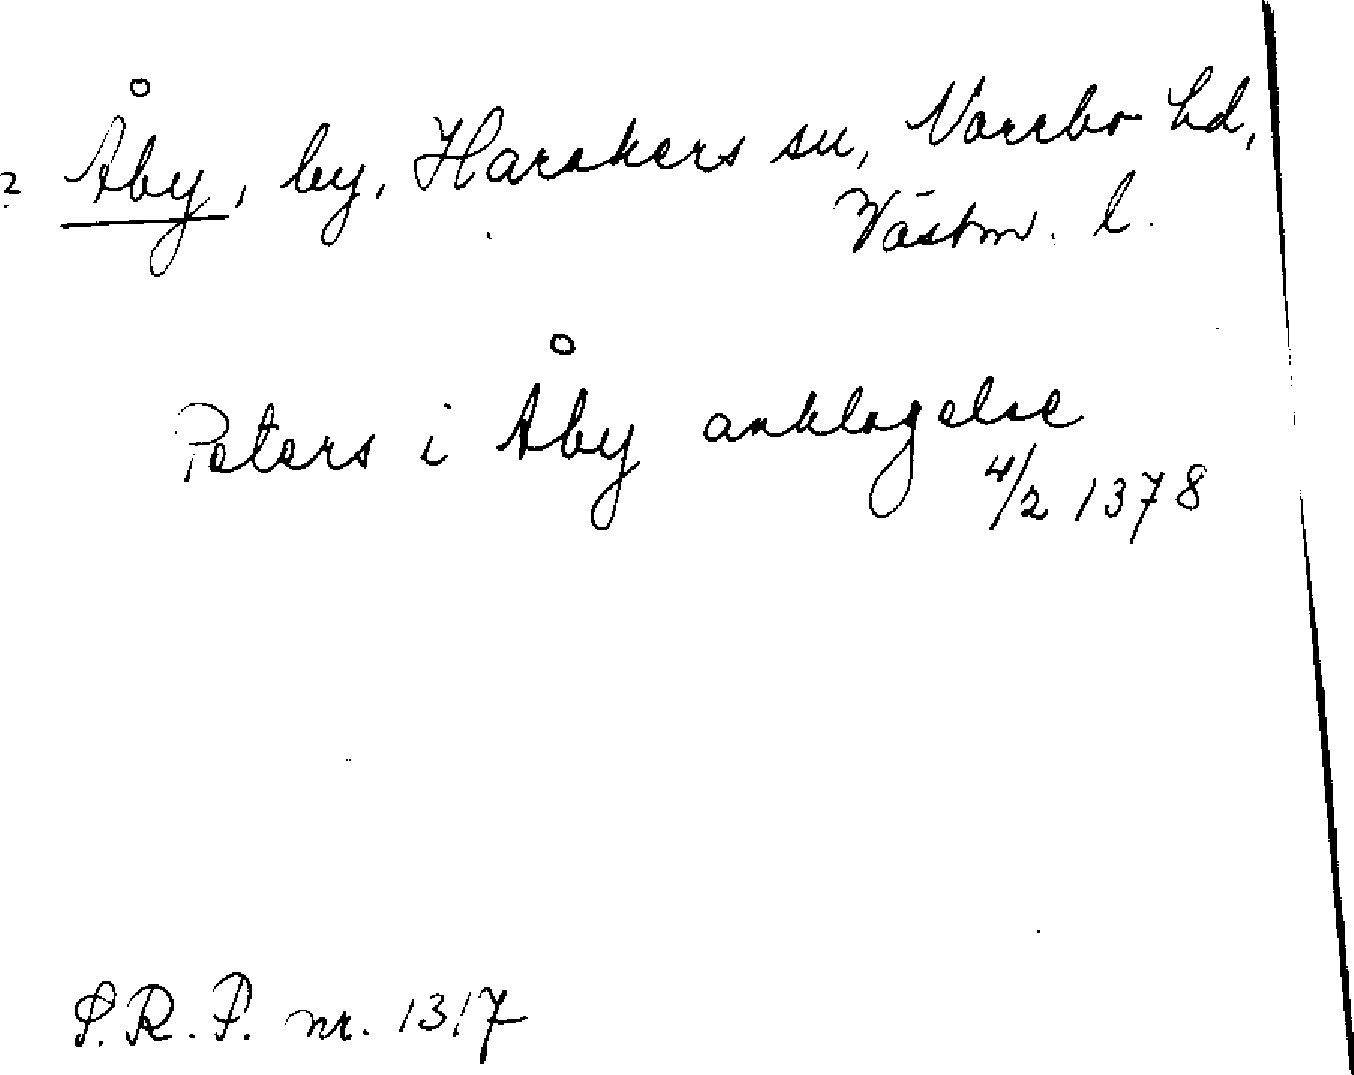 ? Åby, by, Harakers sn, Norrbo hd,
Västm. l.
Peters i Åby anklagelse
4/2 1378
S.R.P. nr. 1317